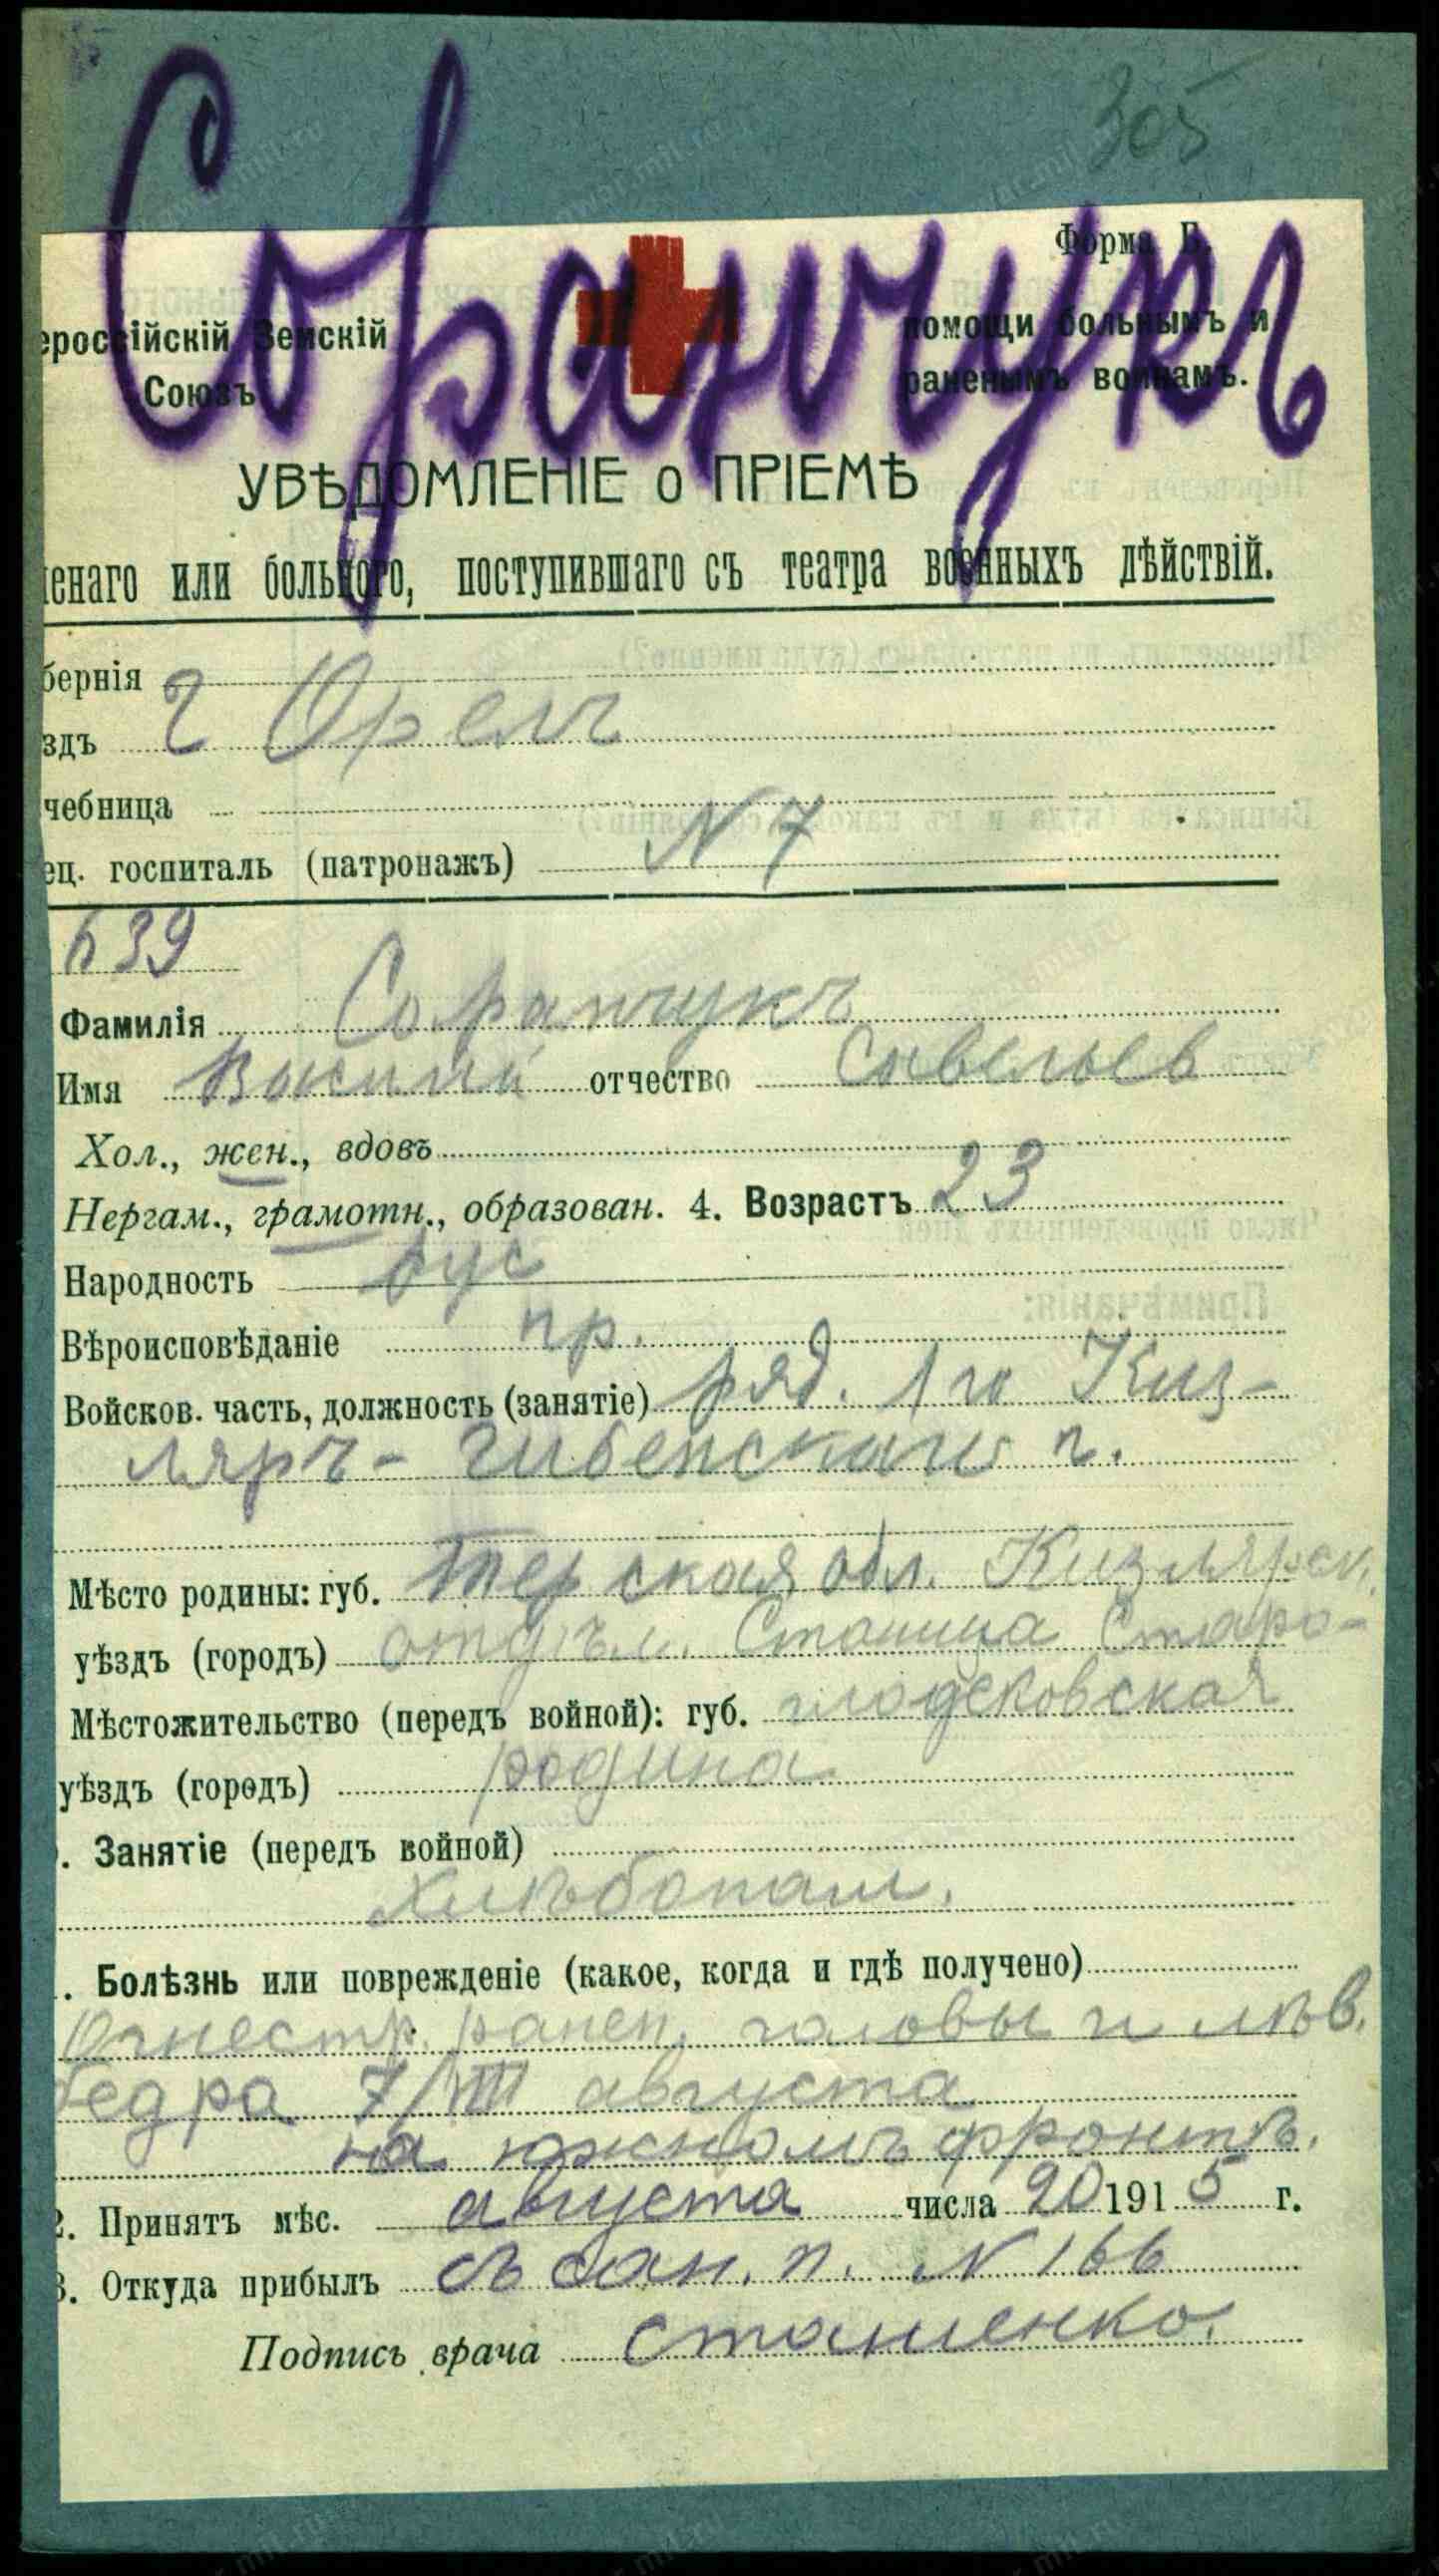 305
Соранчукъ
Форма Б.
ероссійскій Земскій
Союзъ
помощи больнымъ и
раненымъ воинамъ.
УВѢДОМЛЕНІЕ о ПРІЕМѢ
енаго или больного, поступившаго съ театра военныхъ дѣйствій.
бернія
здъ г Орелъ
чебница
ец. госпиталь (патронажъ) N 7
639
Фамилія Соранчукъ
Имя Василій отчество Савельев
Хол., жен., вдовъ
Нергам., грамотн., образован. 4. Возрастъ 23
Народность рус
Вѣроисповѣданіе пр.
Войсков. часть, должность (занятіе) ряд. 1го Киз-
ляръ- Гребенскаго п.
Мѣсто родины: губ. Терская обл. Кизлярск.
уѣздъ (городъ) отдѣл. Станица Старо-
Мѣстожительство (передъ войной): губ. гладковская
уѣздъ (городъ) родина
. Занятіе (передъ войной)
Хлѣбопаш.
. Болѣзнь или поврежденіе (какое, когда и гдѣ получено)
Огнестр. ранен. головы и лѣв.
бедра 7/VIII августа
на южномъ фронтѣ.
2. Принятъ мѣс. августа числа 20 1915 г.
3. Откуда прибылъ съ сан. п. N 166
Подпись врача Сташенко.